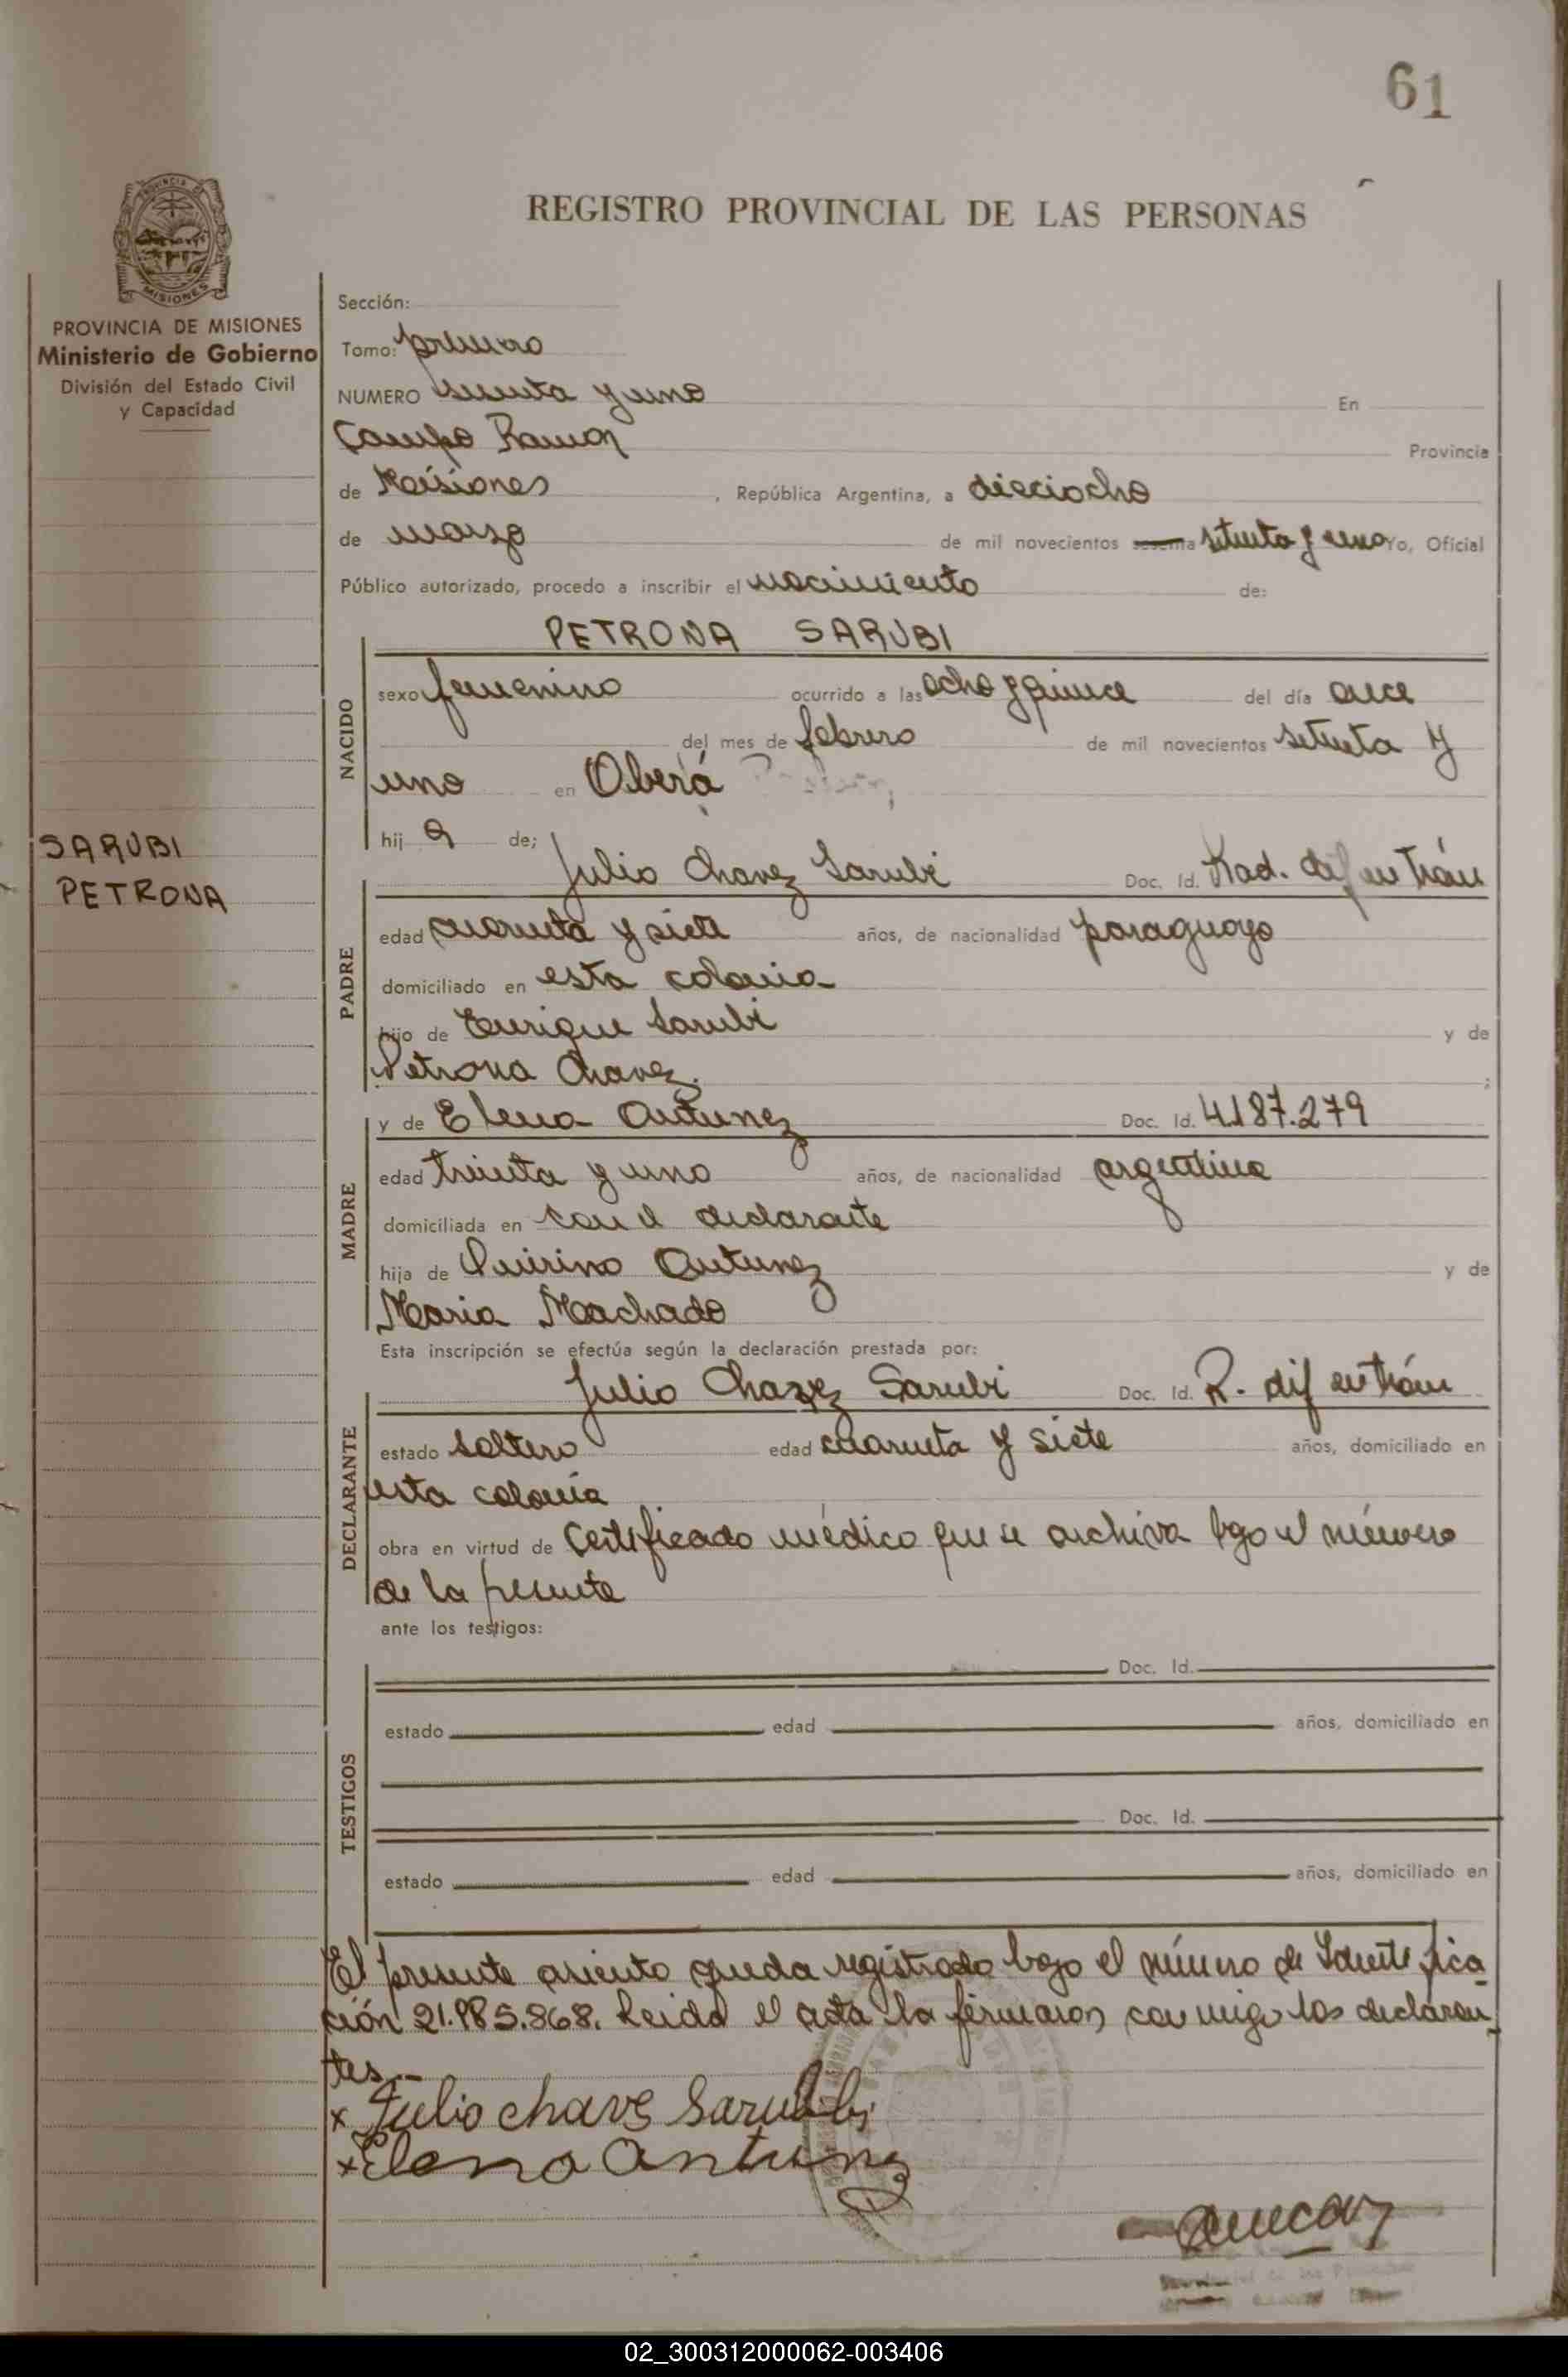 61
REGISTRO PROVINCIAL DE LAS PERSONAS
PROVINCIA DE MISIONES
MISIONES
PROVINCIA DE MISIONES
Ministerio de Gobierno
División del Estado Civil
y Capacidad
SARUBI
PETRONA
Sección:
Tomo: primero
NUMERO sesenta y uno En
Campo Ramon Provincia
de Misiones, República Argentina, a dieciocho
de marzo de mil novecientos setenta y uno Yo, Oficial
Público autorizado, procedo a inscribir el nacimiento de:
PETRONA SARUBI
NACIDO
sexo femenino ocurrido a las ocho y quince del día once
del mes de febrero de mil novecientos setenta y
uno en Oberá
hij a de;
Julio Chavez Sarubi Doc. Id. Rad. dif en trám
PADRE
edad cuarenta y siete años, de nacionalidad paraguayo
domiciliado en esta colonia
hijo de Enrique Sarubi y de
Petrona Chavez. ;
y de Elena Antunez Doc. Id. 4.187.279
MADRE
edad treinta y uno años, de nacionalidad argentina
domiciliada en con el declarante
hija de Quirino Antunez y de
Maria Machado
Esta inscripción se efectúa según la declaración prestada por:
Julio Chavez Sarubi Doc. Id. R. dif en trám
DECLARANTE
estado soltero edad cuarenta y siete años, domiciliado en
esta colonia
obra en virtud de Certificado médico que se archiva bajo el número
de la presente
ante los testigos:
TESTIGOS
Doc. Id.
estado edad años, domiciliado en
Doc. Id.
estado edad años, domiciliado en
El presente asiento queda registrado bajo el número de Identifica
ción 21.985.868. Leida el acta la firmaron conmigo los declaran-
tes.-
x Julio chave Sarubbi
x Elena Antunez
02_300312000062-003406